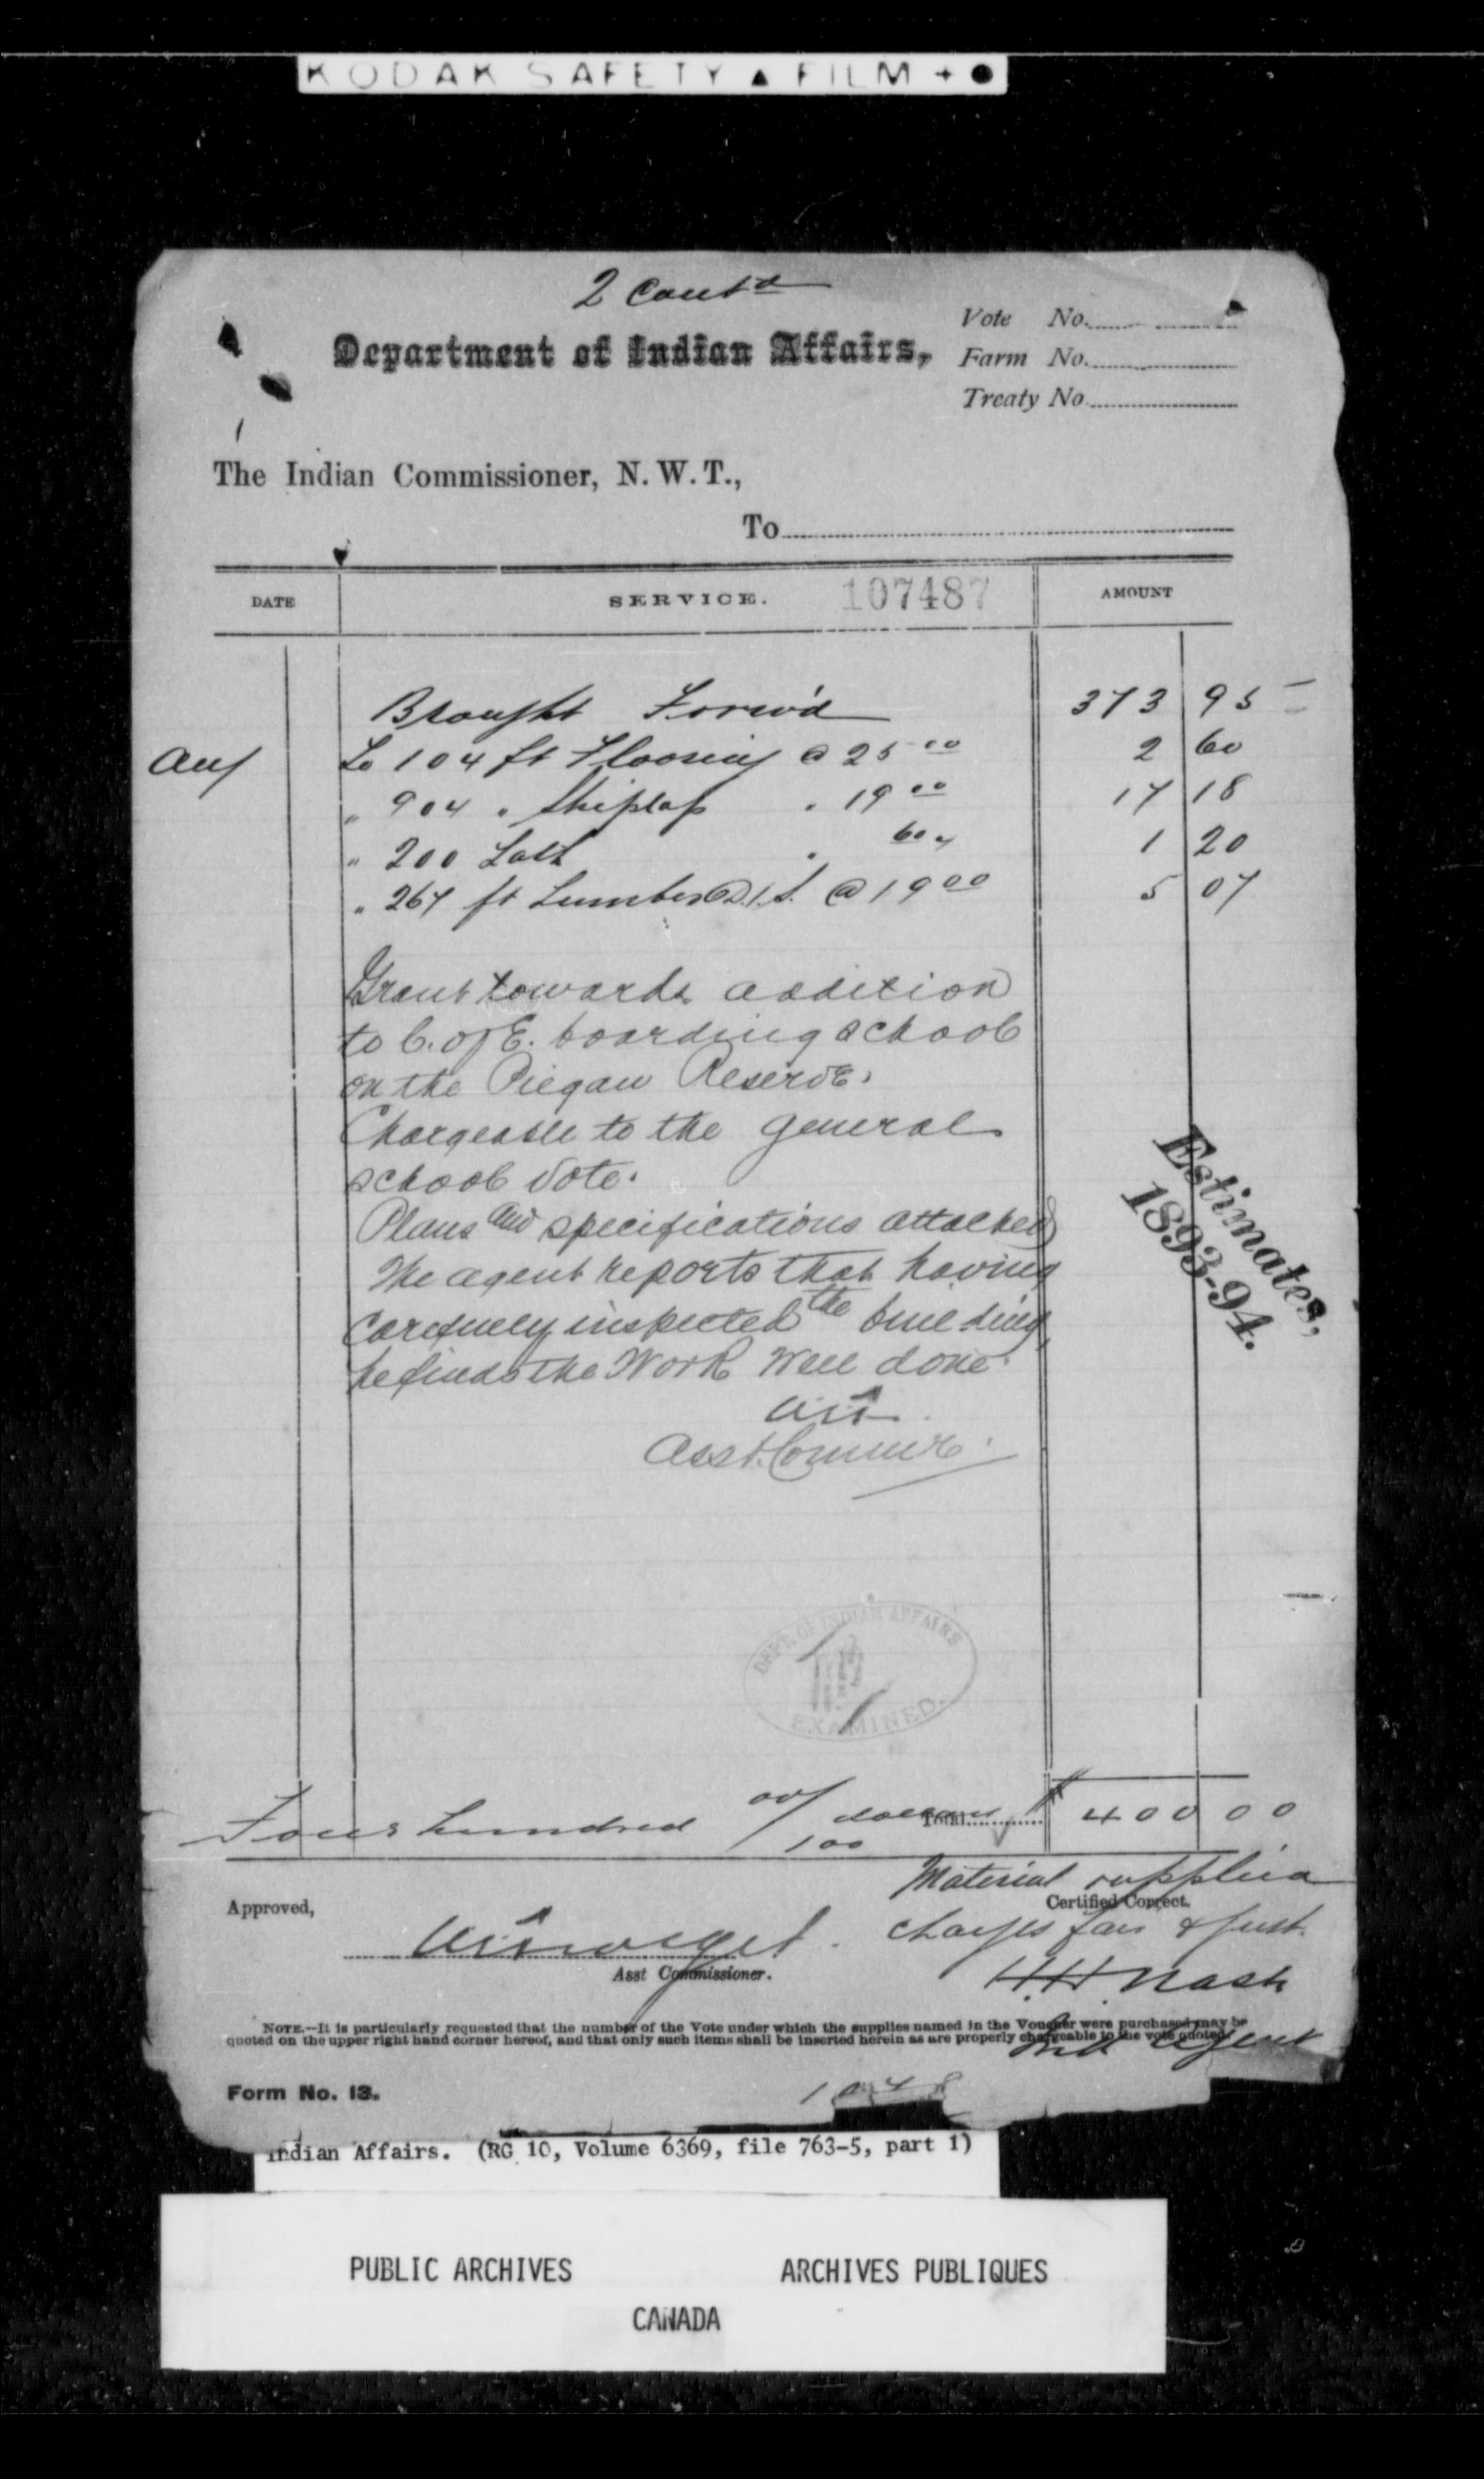 KODAK SAFETY ▲ FILM + ●
2 Contd
Vote No.
Department of Indian Affairs,
Farm No.
Treaty No.
The Indian Commissioner, N. W. T.,
To
DATE SERVICE. 107487 AMOUNT
Brought Forw'd 373 95
Aug To 104 ft Flooring @ 25 00 2 60
" 904 " Shiplap " 19 00 17 18
" 200 Lath " 60 1 20
" 267 ft Lumber S.1.S. @ 19 00 5 07
Grant towards addition
to C. of E. boarding school
on the Piegan Reserve.
Chargeable to the general
school vote.
Plans and specifications attached
The agent reports that having
carefully inspected the building,
he finds the work well done.
Asst. Commr.
Estimates,
1893-94.
DEPT. OF INDIAN AFFAIRS
EXAMINED.
Four hundred 00/100 dollars Total $ 400 00
Material supplied
Approved, Certified Correct.
charges fair & just.
Asst Commissioner.
H.H. Nash
NOTE.—It is particularly requested that the number of the Vote under which the supplies named in the Voucher were purchased may be
quoted on the upper right hand corner hereof, and that only such items shall be inserted herein as are properly chargeable to the vote quoted.
Ind Agent
Form No. 13.
Indian Affairs. (RG 10, Volume 6369, file 763-5, part 1)
PUBLIC ARCHIVES ARCHIVES PUBLIQUES
CANADA